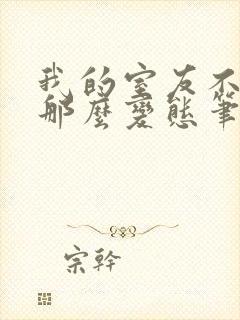 我的室友不
那麼變態筆
宗幹